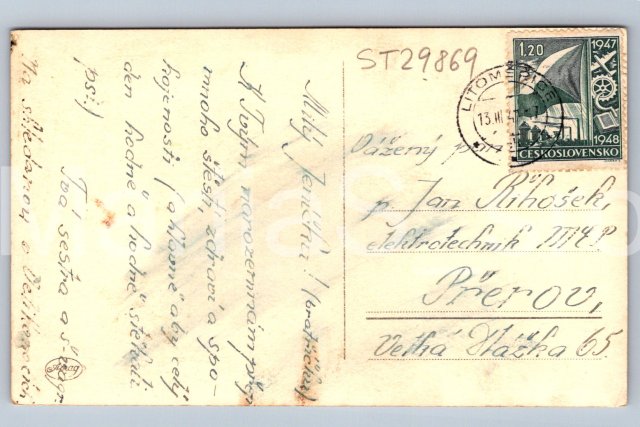 ST29869
1,20
1947
1948
ČESKOSLOVENSKO
LITOMĚŘICE
13.III.47
Milý Jeníčku! (bratříčku)
K Tvým narozeninám přeji
mnoho štěstí, zdraví a spo-
kojenosti (a hlavně aby celý
den hodně a hodně štěkali
psi.)
Tvá sestra a švagr
Na shledanou o Velikonocích
Vážený p.
p. Jan Řihošek,
elektrotechnik
Přerov,
Velká Dlážka 65.